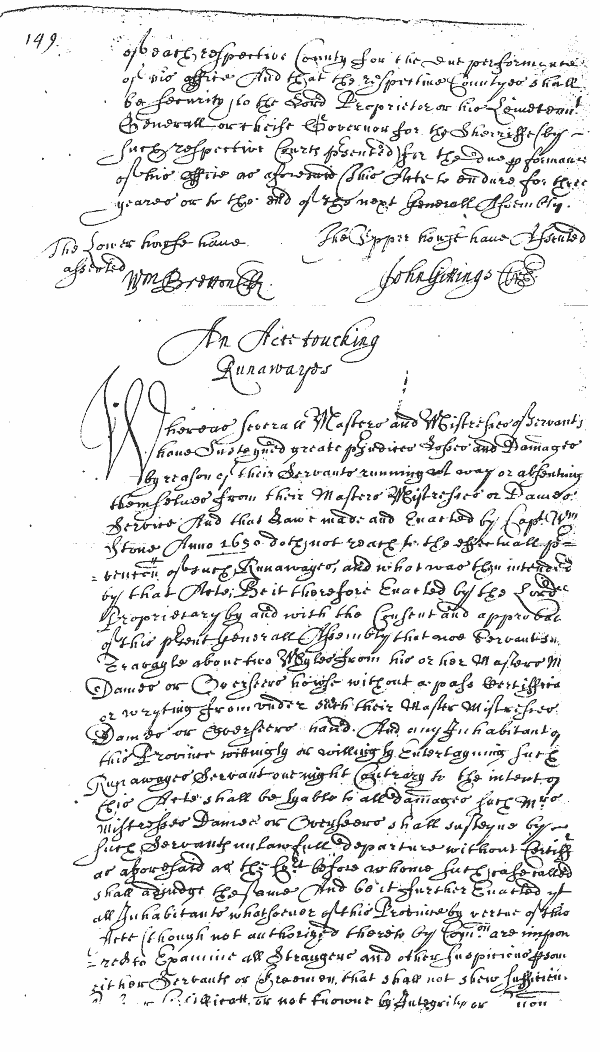 149
of each respective County for the due performance
of his office And that the respective Countyes shall
be security to the Lord Proprietor or his Leivetennt
Generall or cheife Governor for the Sherriffes by
such respective Courts psented for the due pformance
of his office as aforesaid This Acte to endure for three
yeares or to the end of the next Generall Assembly.
The Lower howse have
assented
Wm Bretton Clk
The Upper house have Assented
John Gittings Clk
An Acte touching
Runawayes
Whereas severall Masters and Mistresses of Servants
have Susteyned greate pjudice Losses and Damages
by reason of their Servants running away or absenting
themselves from their Masters Mistresses or Dames
Service And that Lawe made and Enacted by Capt Wm
Stone Anno 1650 doth not reach to the effectuall p-
vencon of such Runawayes and what was then intended
by that Acte, Be it therefore Enacted by the Lord
Proprietary by and with the Consent and approbac
of this psent Generall Assembly that noe Servant
Travayle above two Myles from his or her Masters M
Dames or Overseers howse without a pass Certifficate
or wryting from under their Master Mistresses
Dames or Overseers hand. And any Inhabitant of
this Province wittingly or willingly Entertayning such
Runawayes Servant one night Contrary to the intent of
this Acte shall be lyable to all damages such Mrs
Mistresses Dames or Overseers shall susteyne by
such Servants unlawfull departure without Certiff
as aforesaid as the Cort before whome such
shall adjudge the same And be it further Enacted yt
all Inhabitants whatsoever of this Province by vertue of this
Acte (though not authorized thereto by Comon are impow
-red to Examine all Strangers and other suspicious psons
either Servants or Freemen, that shall not shew sufficien
or not knowne by Integrity or